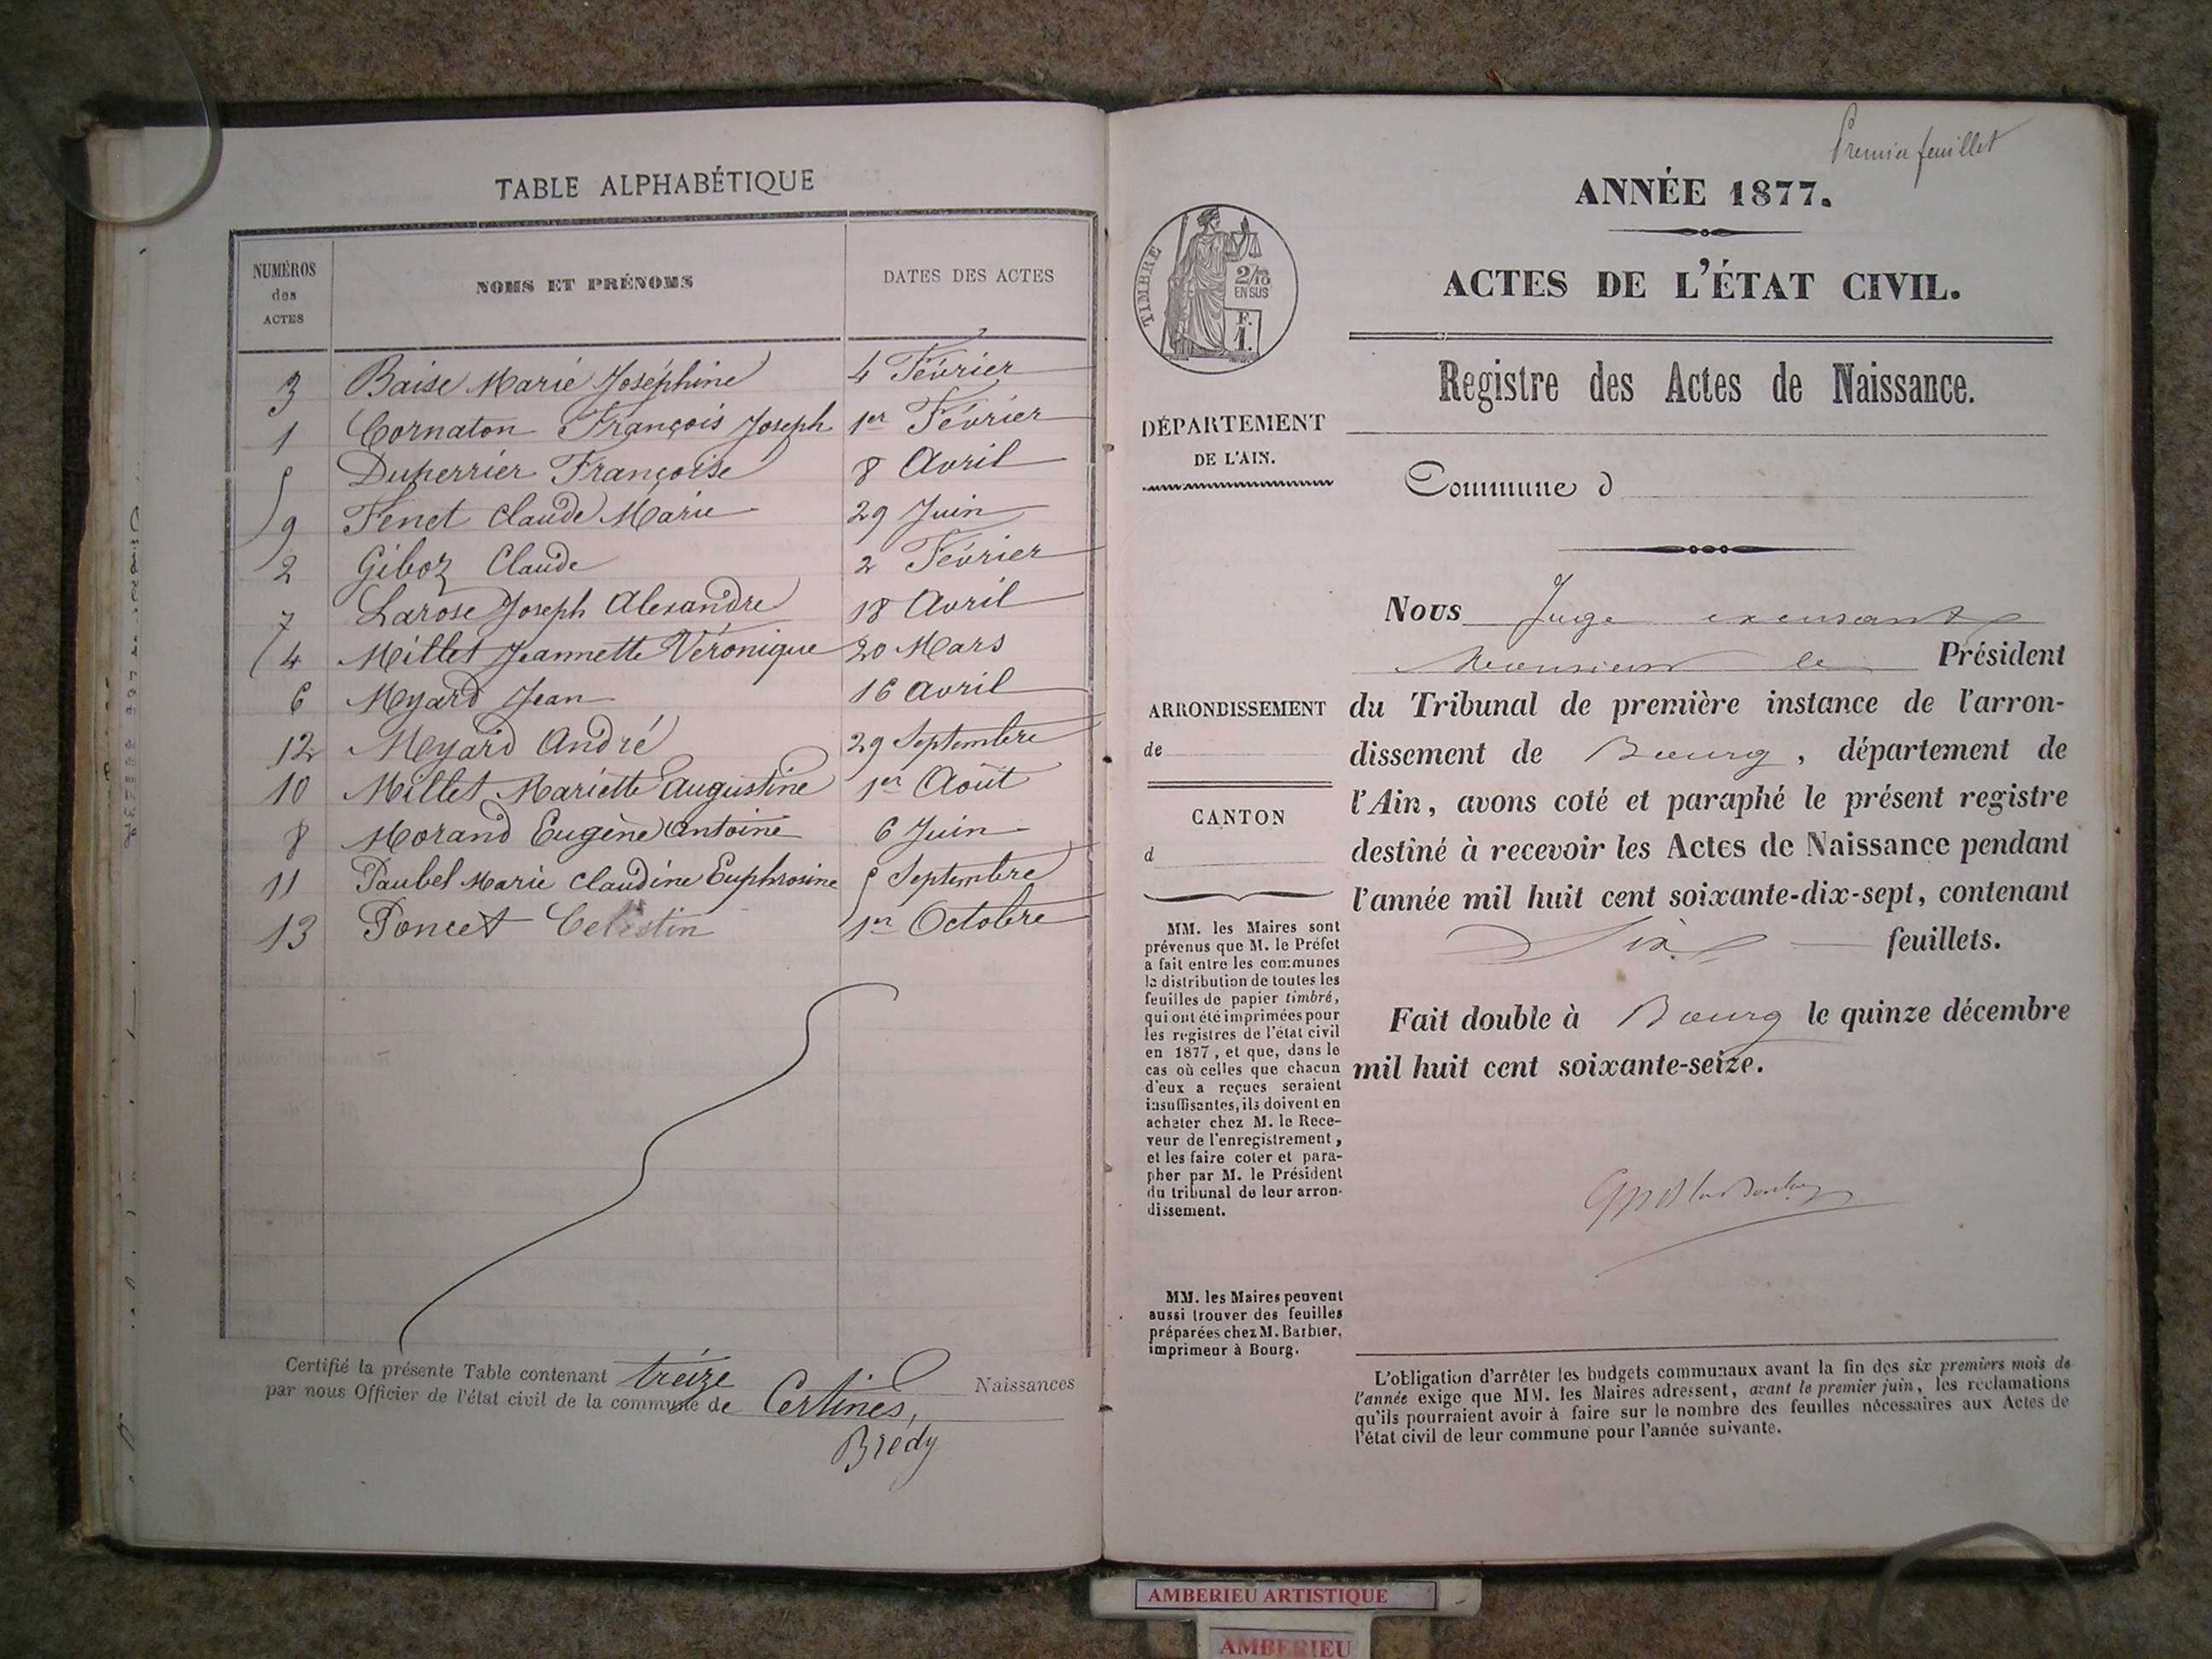 TABLE ALPHABÉTIQUE
NUMÉROS des ACTES NOMS ET PRÉNOMS DATES DES ACTES
3 Baise Marie Joséphine 4 Février
1 Cornaton François Joseph 1er Février
5 Duperrier Françoise 8 Avril
9 Fenet Claude Marie 29 Juin
2 Giboz Claude 2 Février
7 Larose Joseph Alexandre 18 Avril
4 Millet Jeannette Véronique 20 Mars
6 Moyard Jean 16 Avril
12 Moyard André 29 Septembre
10 Millet Mariette Augustine 1er Août
8 Morand Eugène Antoine 6 Juin
11 Paubel Marie Claudine Euphrosine 5 Septembre
13 Poncet Celestin 1er Octobre
Certifié la présente Table contenant treize Naissances
par nous Officier de l'état civil de la commune de Certines,
Brédy
Premier feuillet
ANNÉE 1877.
TIMBRE
2/10
EN SUS
F.
1.
ACTES DE L'ÉTAT CIVIL.
Registre des Actes de Naissance.
DÉPARTEMENT
DE L'AIN.
Commune d
Nous Juge
Monsieur le Président
du Tribunal de première instance de l'arron-
dissement de Bourg, département de
l'Ain, avons coté et paraphé le présent registre
destiné à recevoir les Actes de Naissance pendant
l'année mil huit cent soixante-dix-sept, contenant
Six feuillets.
Fait double à Bourg le quinze décembre
mil huit cent soixante-seize.
ARRONDISSEMENT
de
CANTON
d
MM. les Maires sont
prévenus que M. le Préfet
a fait entre les communes
la distribution de toutes les
feuilles de papier timbré,
qui ont été imprimées pour
les registres de l'état civil
en 1877, et que, dans le
cas où celles que chacun
d'eux a reçues seraient
insuffisantes, ils doivent en
acheter chez M. le Rece-
veur de l'enregistrement,
et les faire coter et para-
pher par M. le Président
du tribunal de leur arron-
dissement.
MM. les Maires peuvent
aussi trouver des feuilles
préparées chez M. Barbier,
imprimeur à Bourg.
L'obligation d'arrêter les budgets communaux avant la fin des six premiers mois de
l'année exige que MM. les Maires adressent, avant le premier juin, les réclamations
qu'ils pourraient avoir à faire sur le nombre des feuilles nécessaires aux Actes de
l'état civil de leur commune pour l'année suivante.
AMBERIEU ARTISTIQUE
AMBERIEU